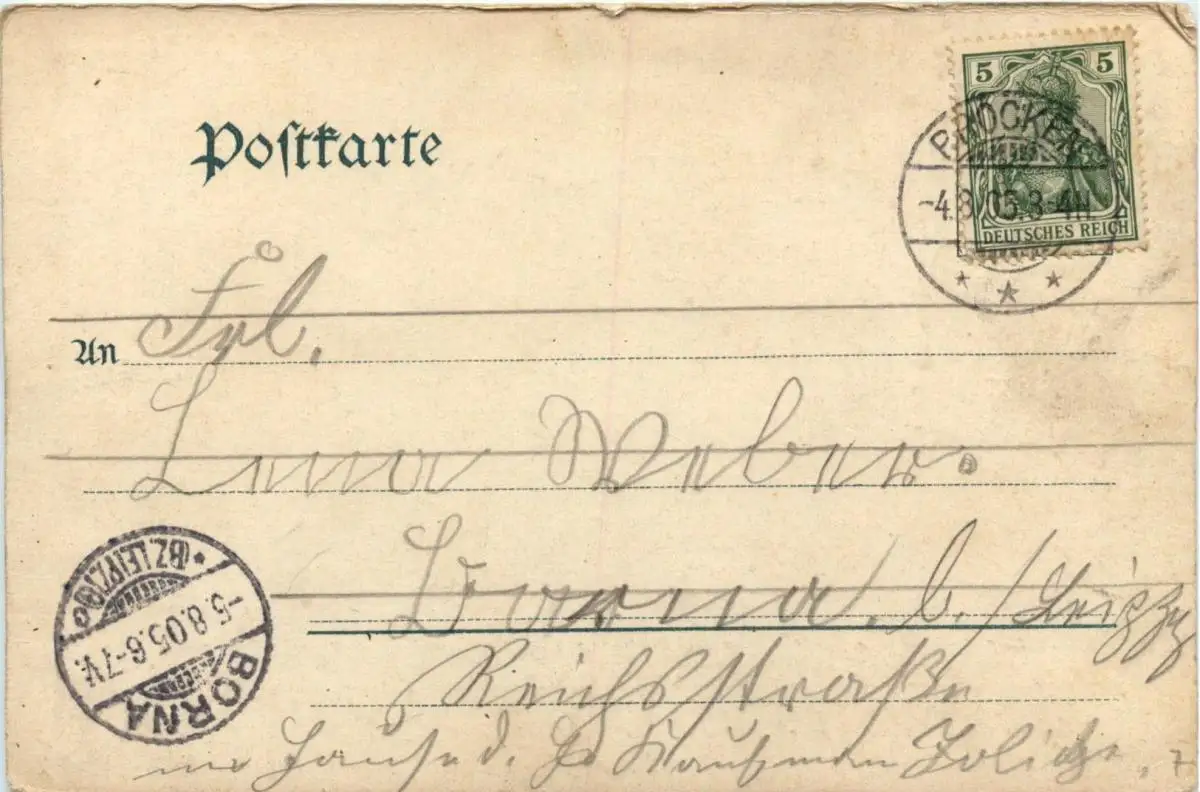 Postkarte
5 5
DEUTSCHES REICH
BROCKEN
-4.8.05.3-4N
An Frl.
Lena Weber.
Borna b./Leipzig
Reichsstraße
im Hause d. H Kaufmann
(BZ. LEIPZIG)
-5.8.05.6-7V.
BORNA